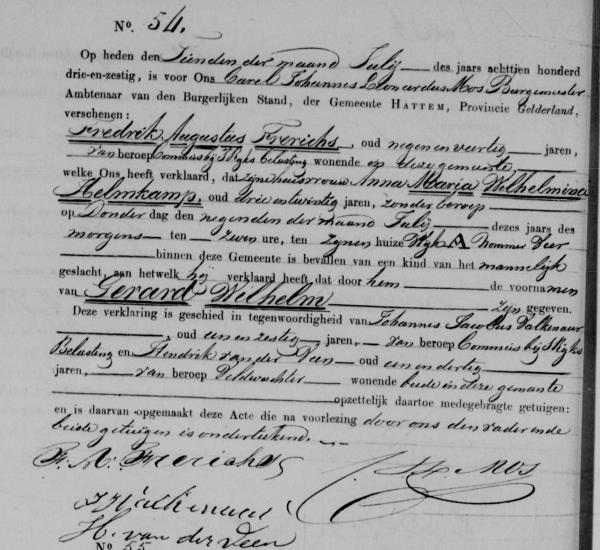 No. 54.
Op heden den Tienden der maand Julij des jaars achttien honderd
drie-en-zestig, is voor Ons Carel Johannes Leonardus Mos Burgemeester
Ambtenaar van den Burgerlijken Stand, der Gemeente HATTEM, Provincie Gelderland,
verschenen:
Fredrik Augustus Frerichs, oud negen en veertig jaren,
van beroep Commies bij 's Rijks belasting wonende op deze gemeente,
welke Ons, heeft verklaard, dat zijne huisvrouw Anna Maria Wilhelmina
Helmkamp, oud drie en twintig jaren, zonder beroep
op Donder dag den negenden der maand Julij dezes jaars des
morgens ten zeven ure, ten zijnen huize Wijk A Nommer Vier
binnen deze Gemeente is bevallen van een kind van het mannelijk
geslacht, aan hetwelk hij verklaard heeft dat door hem de voornamen
van Gerard Wilhelm zijn gegeven.
Deze verklaring is geschied in tegenwoordigheid van Johannes Jacobus Valkenaar
, oud een en zestig jaren, van beroep Commies bij 's Rijks
Belasting en Hendrik van der Veen oud een en dertig
jaren, van beroep Veldwachter wonende beide in deze gemeente
opzettelijk daartoe medegebragte getuigen:
en is daarvan opgemaakt deze Acte die na voorlezing door ons den vader en de
beide getuigen is onderteekend.
F. A. Frerichs
Mos
H. van der Veen
No 55